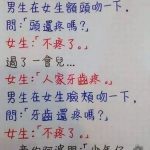 男生在女生額頭吻一下，
問：「頭還疼嗎？」
女生：「不疼了。」
過了一會兒…
女生：「人家牙齒疼。」
男生在女生臉頰吻一下，
問：「牙齒還疼嗎？」
女生：「不疼了。」